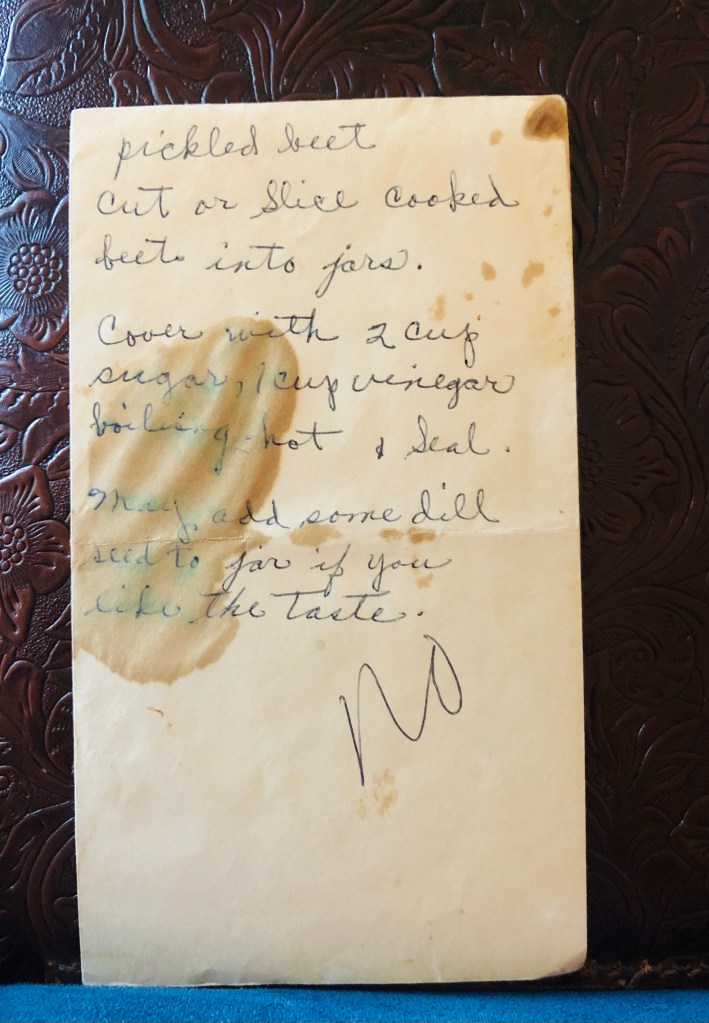 pickled beet
cut or slice cooked
beets into jars.
Cover with 2 cup
sugar, 1 cup vinegar
boiling hot & Seal.
May add some dill
seed to jar if you
like the taste.
NO